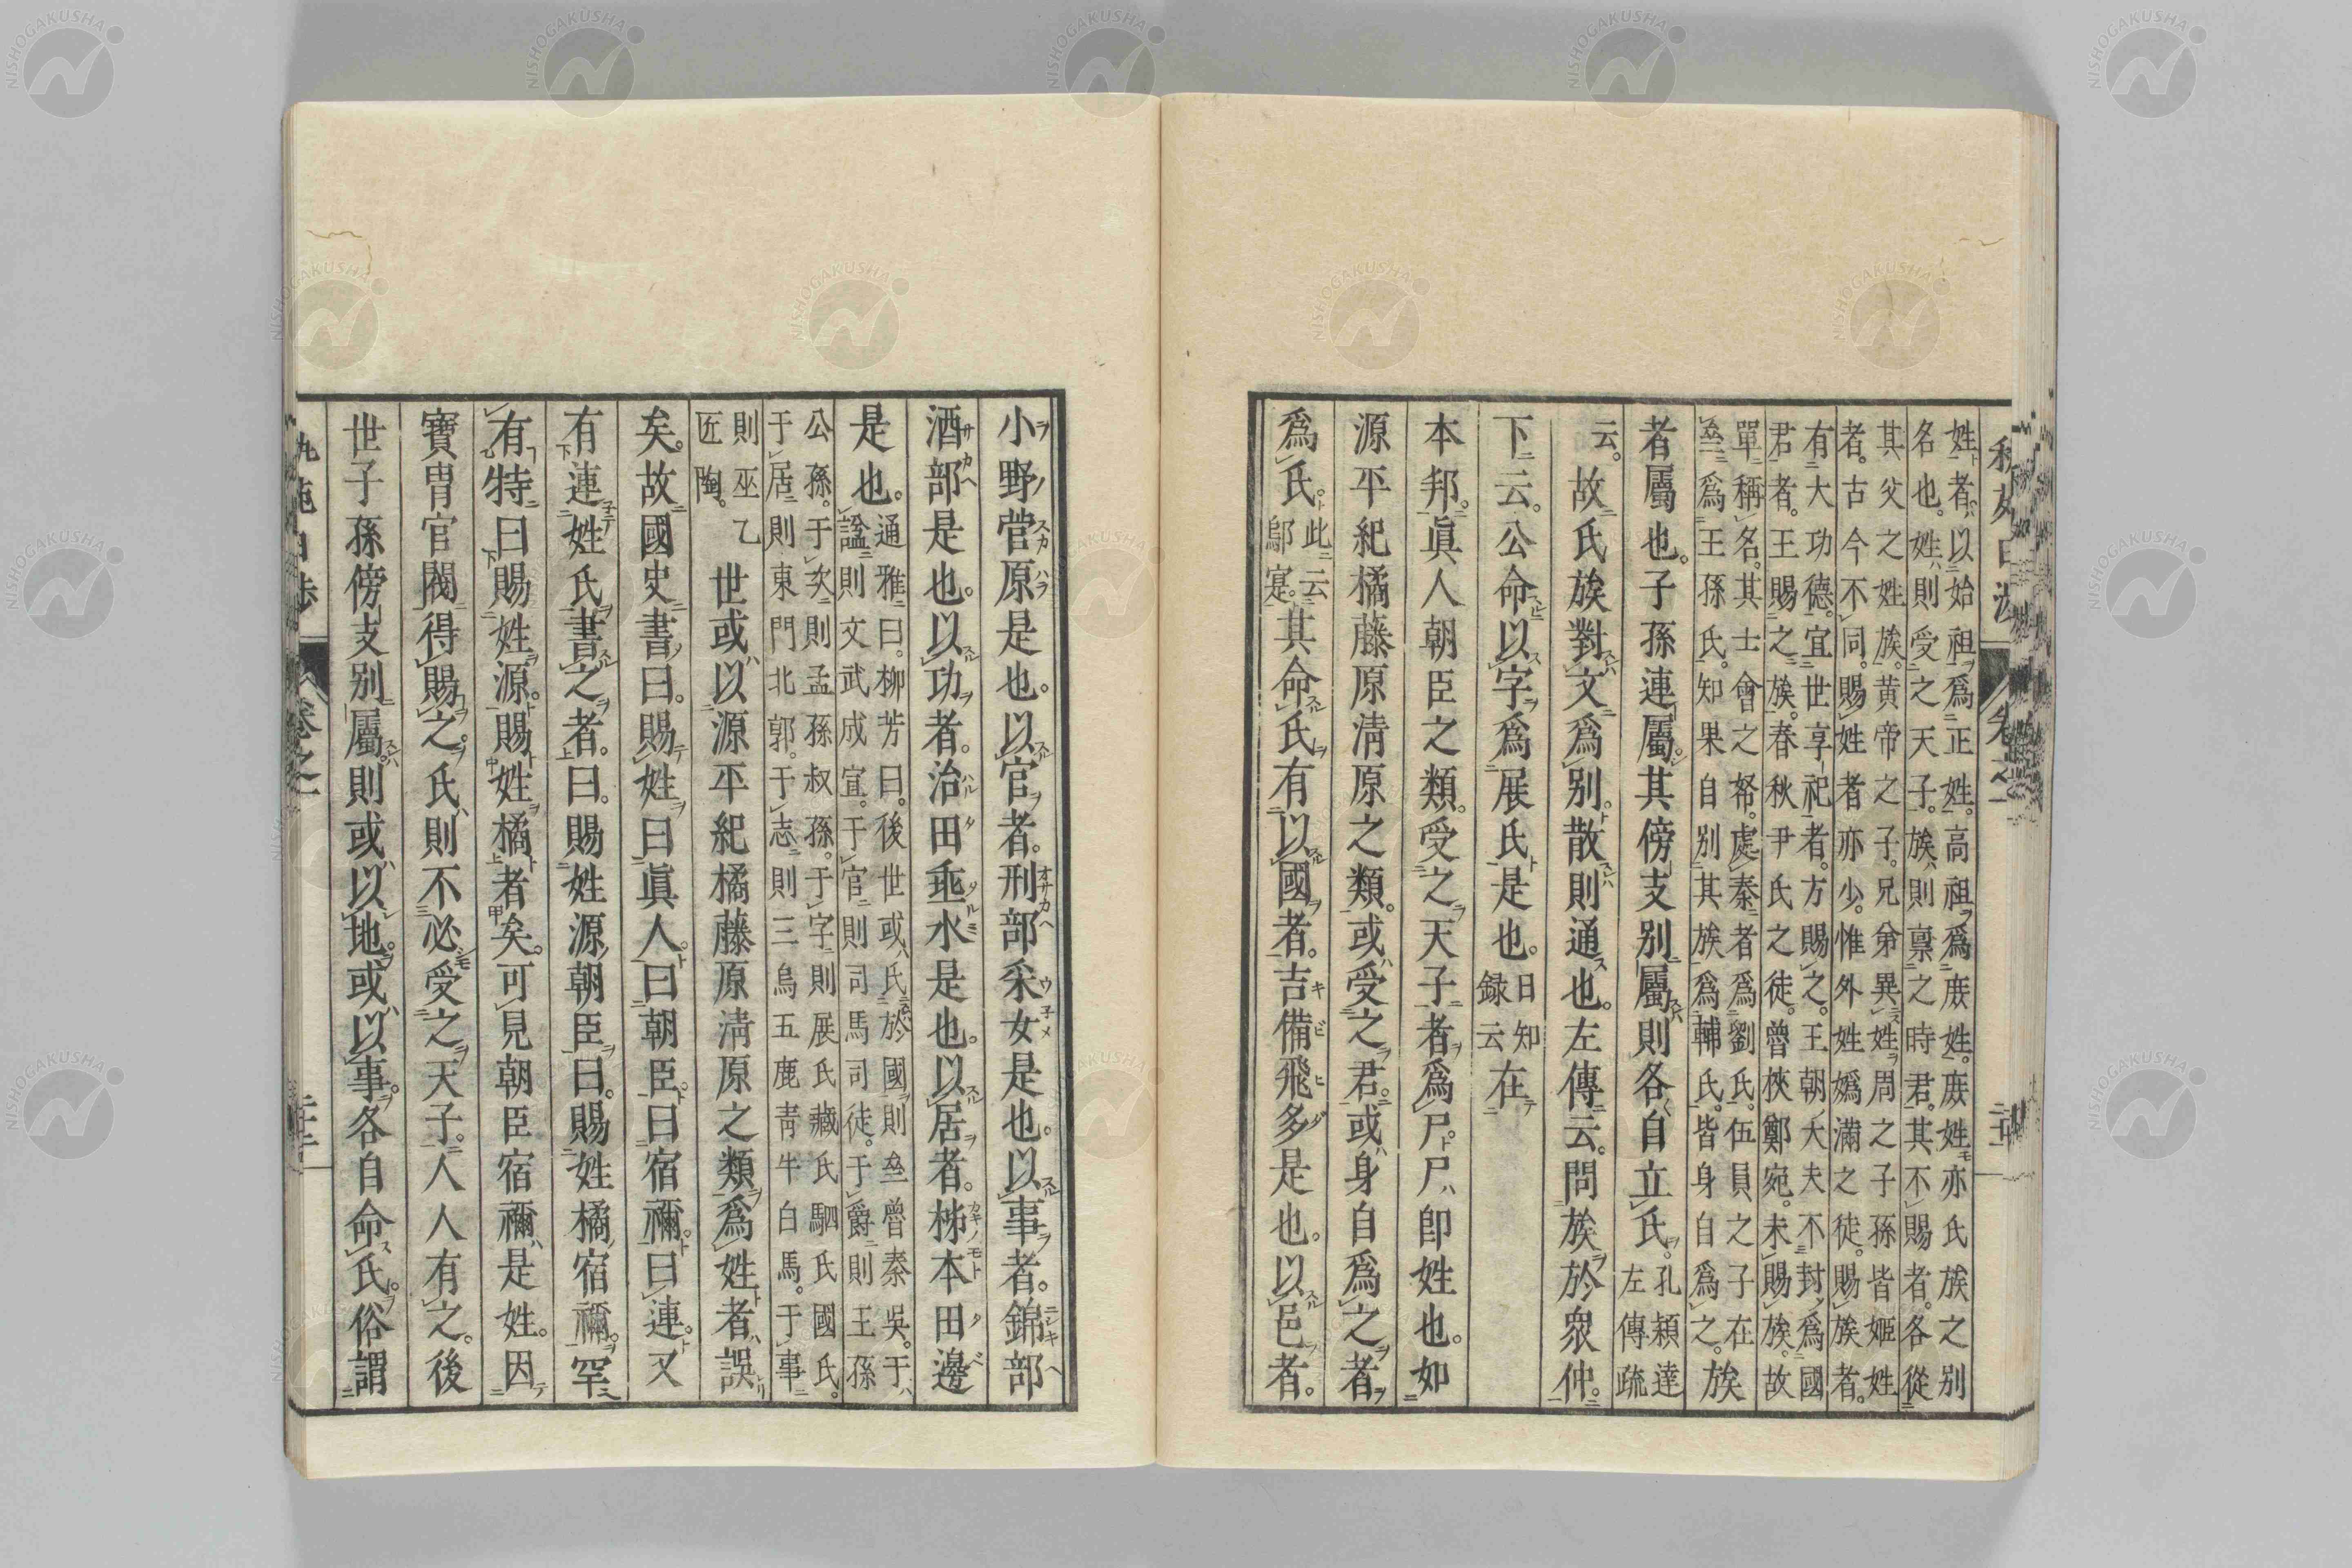 姓者以始祖爲正姓。高祖爲庶姓。庶姓亦氏族之別
名也。姓則受之天子。族則稟之時君。其不賜者。各從
其父之姓族。黄帝之子。兄弟異姓。周之子孫皆姬姓
者。古今不同。賜姓者亦少。惟外姓嬀滿之徒。賜族者。
有大功德。宜世享祀者。方賜之。王朝大夫。不封爲國
君者。王賜之族。春秋尹氏之徒。曾挾鄭宛。未賜族。故
單稱名。其士會之帑。處秦者爲劉氏。伍員之子在
亝爲王孫氏。知果自別其族爲輔氏。皆身自爲之。族
者屬也。子孫連屬。其傍支別屬則各自立氏。孔穎達
左傳疏
云。故氏族對文爲別。散則通也。左傳云。問族於衆仲。
下云。公命以字爲展氏是也。日知録云在
本邦。眞人朝臣之類。受之天子者爲尸。尸卽姓也。如
源平紀橘藤原清原之類。或受之君。或身自爲之者
爲氏。此云鄔寔。其命氏有以國者。吉備飛多是也。以邑者。
小野菅原是也。以官者。刑部采女是也。以事者。錦部
酒部是也。以功者。治田垂水是也。以居者。柹本田邊
是也。通雅曰。柳芳曰。後世或氏於國則亝魯秦吳。于
謚則文武成宣。于官則司馬司徒。于爵則王孫
公孫。于次則孟孫叔孫。于字則展氏臧氏駟氏國氏。
于居則東門北郭。于志則三烏五鹿青牛白馬。于事
則巫乙
匠陶。
世或以源平紀橘藤原清原之類爲姓者誤
矣。故國史書曰。賜姓曰眞人。曰朝臣。曰宿禰。曰連。又
有連姓氏書之者。曰。賜姓源朝臣。曰。賜姓橘宿禰。罕
有特曰賜姓源。賜姓橘者矣。可見朝臣宿禰是姓。因
寶冑官閥得賜之。氏則不必受之天子。人人有之。後
世子孫傍支別屬則或以地。或以事。各自命氏。俗謂
NISHOGAKUSHA